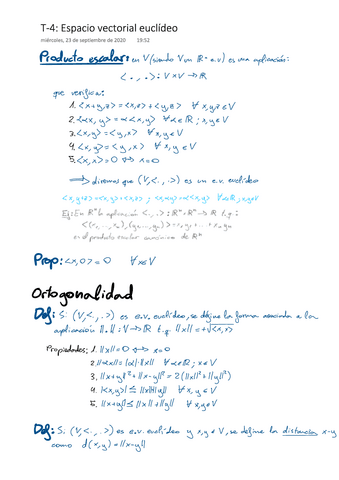 T-4: Espacio vectorial euclídeo
miércoles, 23 de septiembre de 2020 19:52
Producto escalar: en V (siendo V un ℝ-e.v) es una aplicación:
< . , . > : V×V → ℝ
que verifica:
1. <x+y,z> = <x,z> + <y,z> ∀ x,y,z ∈ V
2. <αx, y> = α<x, y> ∀ α ∈ ℝ ; x,y ∈ V
3. <x,y> = <y,x> ∀ x,y ∈ V
4. <x,y> = <y,x> ∀ x,y ∈ V
5. <x,x> = 0 ⇔ x=0
⟹ diremos que (V,< . , . >) es un e.v. euclídeo
<x,y+z> = <x,y> + <x,z> ; <x,αy> = α<x,y> ∀ α∈ℝ ; x,y∈V
Ej: En ℝⁿ la aplicación < . , . > : ℝⁿ×ℝⁿ → ℝ t.q.
<(x₁,...,xₙ),(y₁,...,yₙ)> = x₁y₁ + ... + xₙyₙ
es el producto escalar canónico de ℝⁿ
Prop: <x,0> = 0 ∀x∈V
Ortogonalidad
Def: Si (V,< . , . >) es e.v. euclídeo, se define la forma asociada a la
aplicación ||.|| : V → ℝ t.q ||x|| = +√<x,x>
Propiedades: 1. ||x|| = 0 ⇔ x=0
2. ||αx|| = |α|·||x|| ∀ α∈ℝ ; x∈V
3. ||x+y||² + ||x-y||² = 2(||x||² + ||y||²)
4. |<x,y>| ≤ ||x||·||y|| ∀ x,y ∈ V
5. ||x+y|| ≤ ||x|| + ||y|| ∀ x,y ∈ V
Def: Si (V,< . , . >) es e.v. euclídeo y x,y ∈ V, se define la distancia x-y
como d(x,y) = ||x-y||